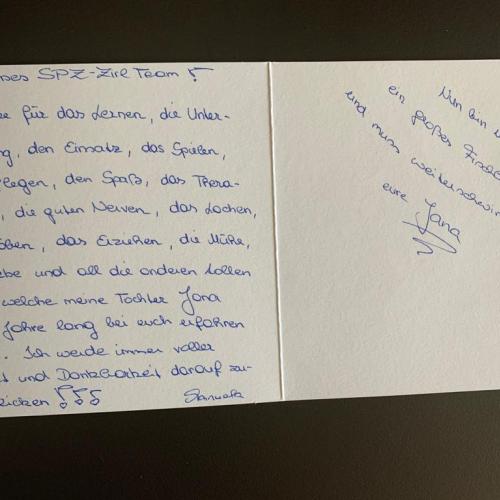 ses SPZ-Zirl Team!
e für das Lernen, die Unter-
g, den Einsatz, das Spielen,
legen, den Spaß, das Thera-
, die guten Nerven, das Lachen,
öben, das Erziehen, die Mühe,
ebe und all die anderen tollen
welche meine Tochter Jana
Jahre lang bei euch erfahren
. Ich werde immer voller
t und Dankbarkeit darauf zu-
icken!!!
Manuela
Nun bin i
ein großer Fisch
und muss weiterschwi
eure Jana